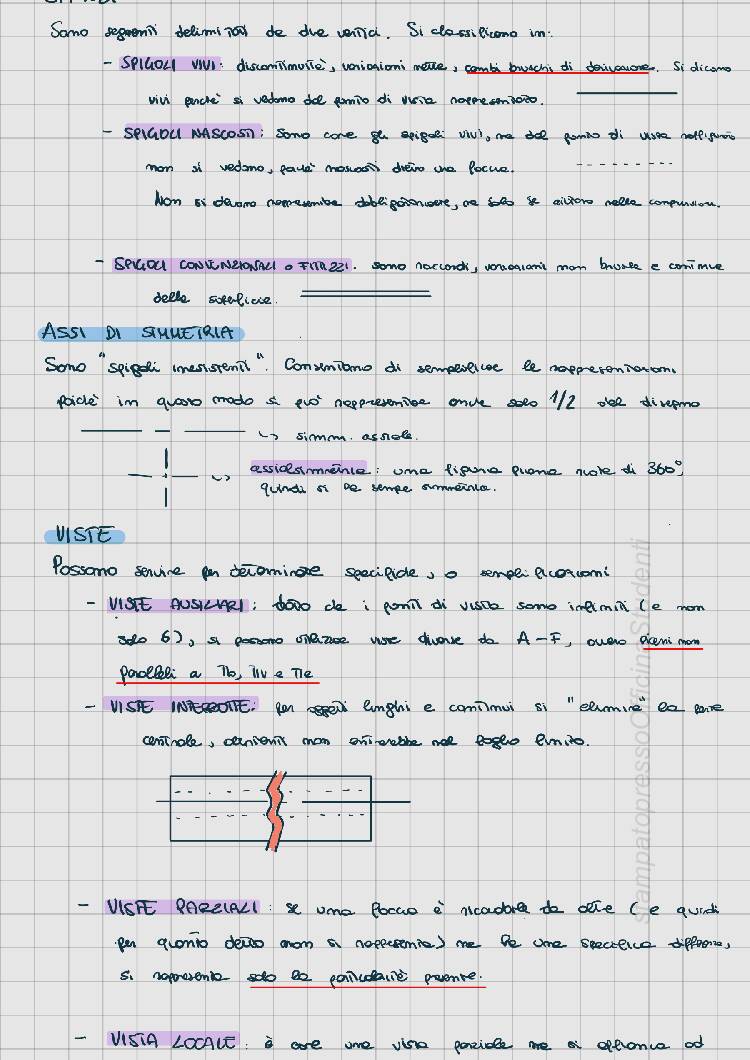 Sono segmenti delimitati da due vertici. Si classificano in:
- SPIGOLI VIVI: discontinuità, variazioni nette, cambi bruschi di derivazione. Si dicono
vivi perché si vedono dal punto di vista rappresentato.
- SPIGOLI NASCOSTI: sono come gli spigoli vivi, ma dal punto di vista raffigurato
non si vedono, perché nascosti dietro una faccia.
Non si devono rappresentare obbligatoriamente, ma solo se aiutano nella comprensione.
- SPIGOLI CONVENZIONALI o FITTIZI. sono raccordi, variazioni non brusche e continue
della superficie.
ASSI DI SIMMETRIA
Sono "spigoli inesistenti". Consentono di semplificare le rappresentazioni
poiché in questo modo si può rappresentare anche solo 1/2 del disegno
↳ simm. assiale.
↳ assialsimmetria: una figura piana ruota di 360°,
quindi si ha sempre simmetria.
VISTE
Possono servire per determinate specifiche, o semplificazioni
- VISTE AUSILIARI: dato che i punti di vista sono infiniti (e non
solo 6), si possono utilizzare viste diverse da A-F, ovvero piani non
paralleli a πo, πv e πe
- VISTE INTERROTTE: per oggetti lunghi e continui si "elimina" la parte
centrale, altrimenti non entrerebbe nel foglio finito.
- VISTE PARZIALI: se una faccia è ricavabile da altre (e quindi
per quanto detto non si rappresenta) ma ha una specifica differenza,
si rappresenta solo la particolarità presente.
- VISTA LOCALE: è come una vista parziale ma si affianca ad
stampatopressoOfficinaStudenti